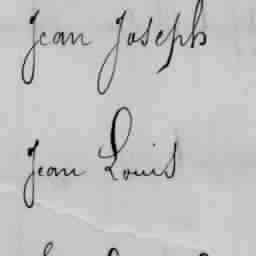 Jean Joseph
Jean Louis